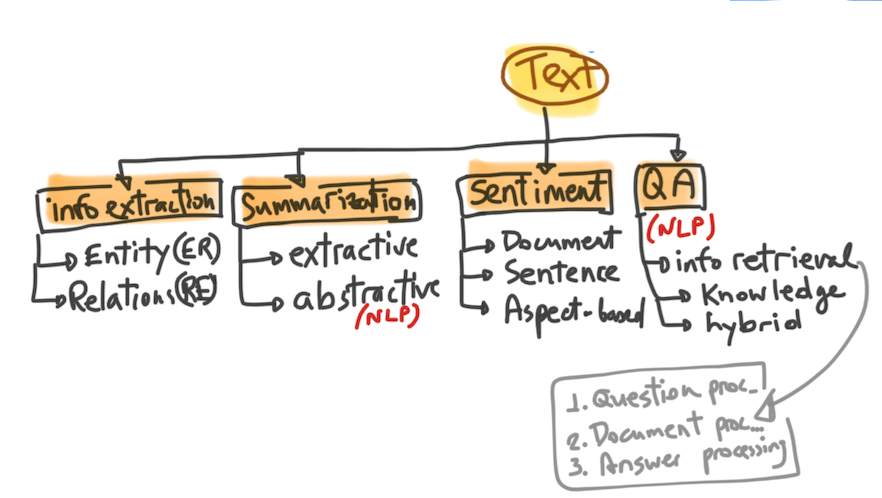 Text
info extraction
Entity (ER)
Relations (RE)
Summarization
extractive
abstractive
(NLP)
Sentiment
Document
Sentence
Aspect-based
QA
(NLP)
info retrieval
Knowledge
hybrid
1. Question proc..
2. Document proc...
3. Answer processing